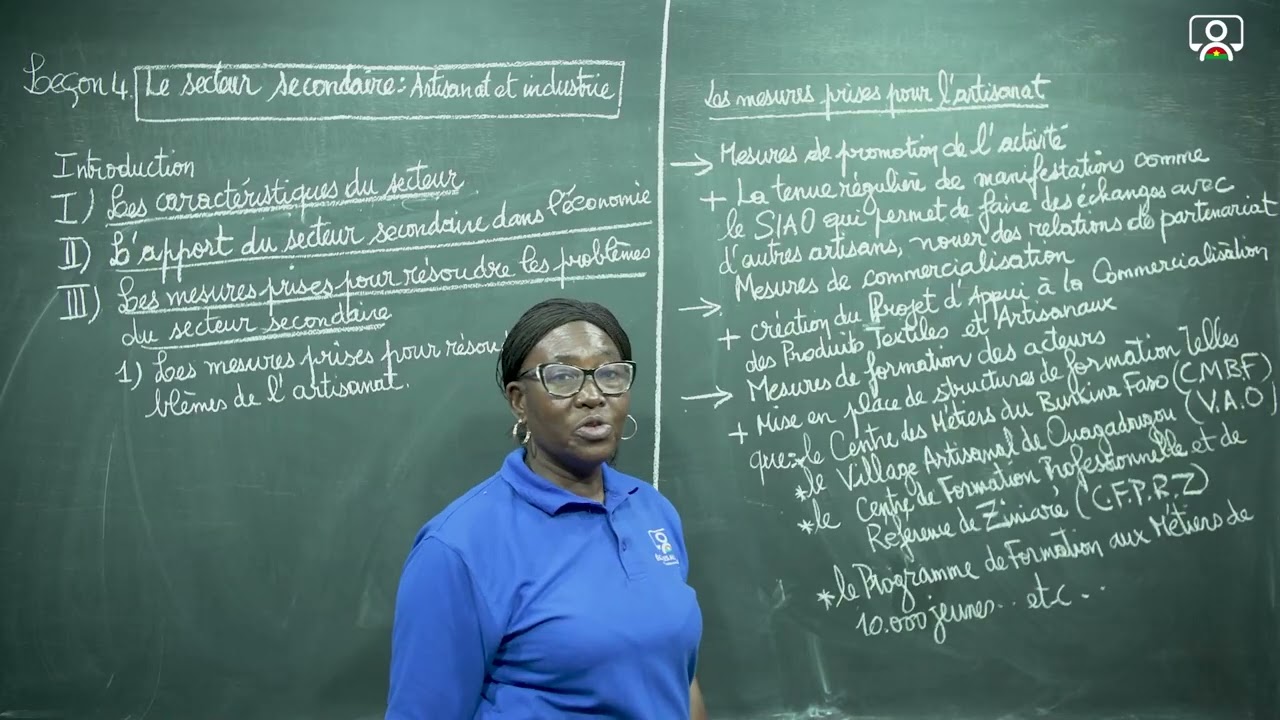 Leçon 4. Le secteur secondaire : Artisanat et industrie
Introduction
I) Les caractéristiques du secteur
II) L'apport du secteur secondaire dans l'économie
III) Les mesures prises pour résoudre les problèmes
du secteur secondaire
1) Les mesures prises pour résou
blèmes de l'artisanat.
Les mesures prises pour l'artisanat
→ Mesures de promotion de l'activité
+ La tenue régulière de manifestations comme
le SIAO qui permet de faire des échanges avec
d'autres artisans, nouer des relations de partenariat
→ Mesures de commercialisation
+ création du Projet d'Appui à la Commercialisation
des Produits Textiles et Artisanaux
→ Mesures de formation des acteurs
+ Mise en place de structures de formation telles
que: * le Centre des Métiers du Burkina Faso (C.M.B.F)
* le Village Artisanal de Ouagadougou (V.A.O)
* le Centre de Formation Professionnelle et de
Réference de Ziniaré (C.F.P.R.Z)
* le Programme de Formation aux Métiers de
10.000 jeunes... etc...